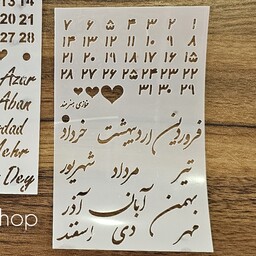 ۱ ۲ ۳ ۴ ۵ ۶ ۷
۸ ۹ ۱۰ ۱۱ ۱۲ ۱۳ ۱۴
۱۵ ۱۶ ۱۷ ۱۸ ۱۹ ۲۰ ۲۱
۲۲ ۲۳ ۲۴ ۲۵ ۲۶ ۲۷ ۲۸
۲۹ ۳۰ ۳۱
فروردین اردیبهشت خرداد
تیر مرداد شهریور
مهر آبان آذر
دی بهمن اسفند
13 14
20 21
27 28
Azar
Aban
dad
Mehr
Dey
hop